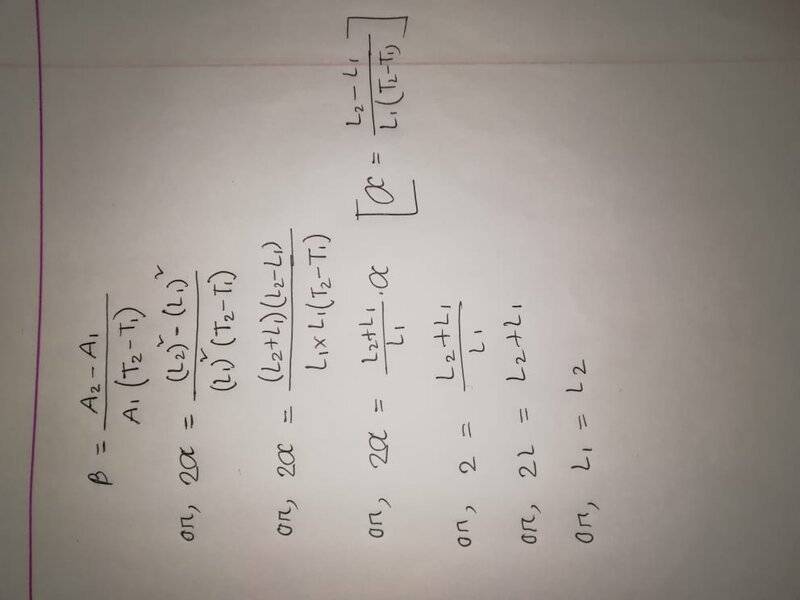 β = (A₂ - A₁) / (A₁ (T₂ - T₁))
or, 2α = ((L₂)² - (L₁)²) / ((L₁)² (T₂ - T₁))
or, 2α = ((L₂+L₁)(L₂-L₁)) / (L₁ x L₁ (T₂ - T₁))
or, 2α = (L₂+L₁)/L₁ . α [α = (L₂ - L₁) / (L₁ (T₂ - T₁))]
or, 2 = (L₂+L₁)/L₁
or, 2L = L₂+L₁
or, L₁ = L₂